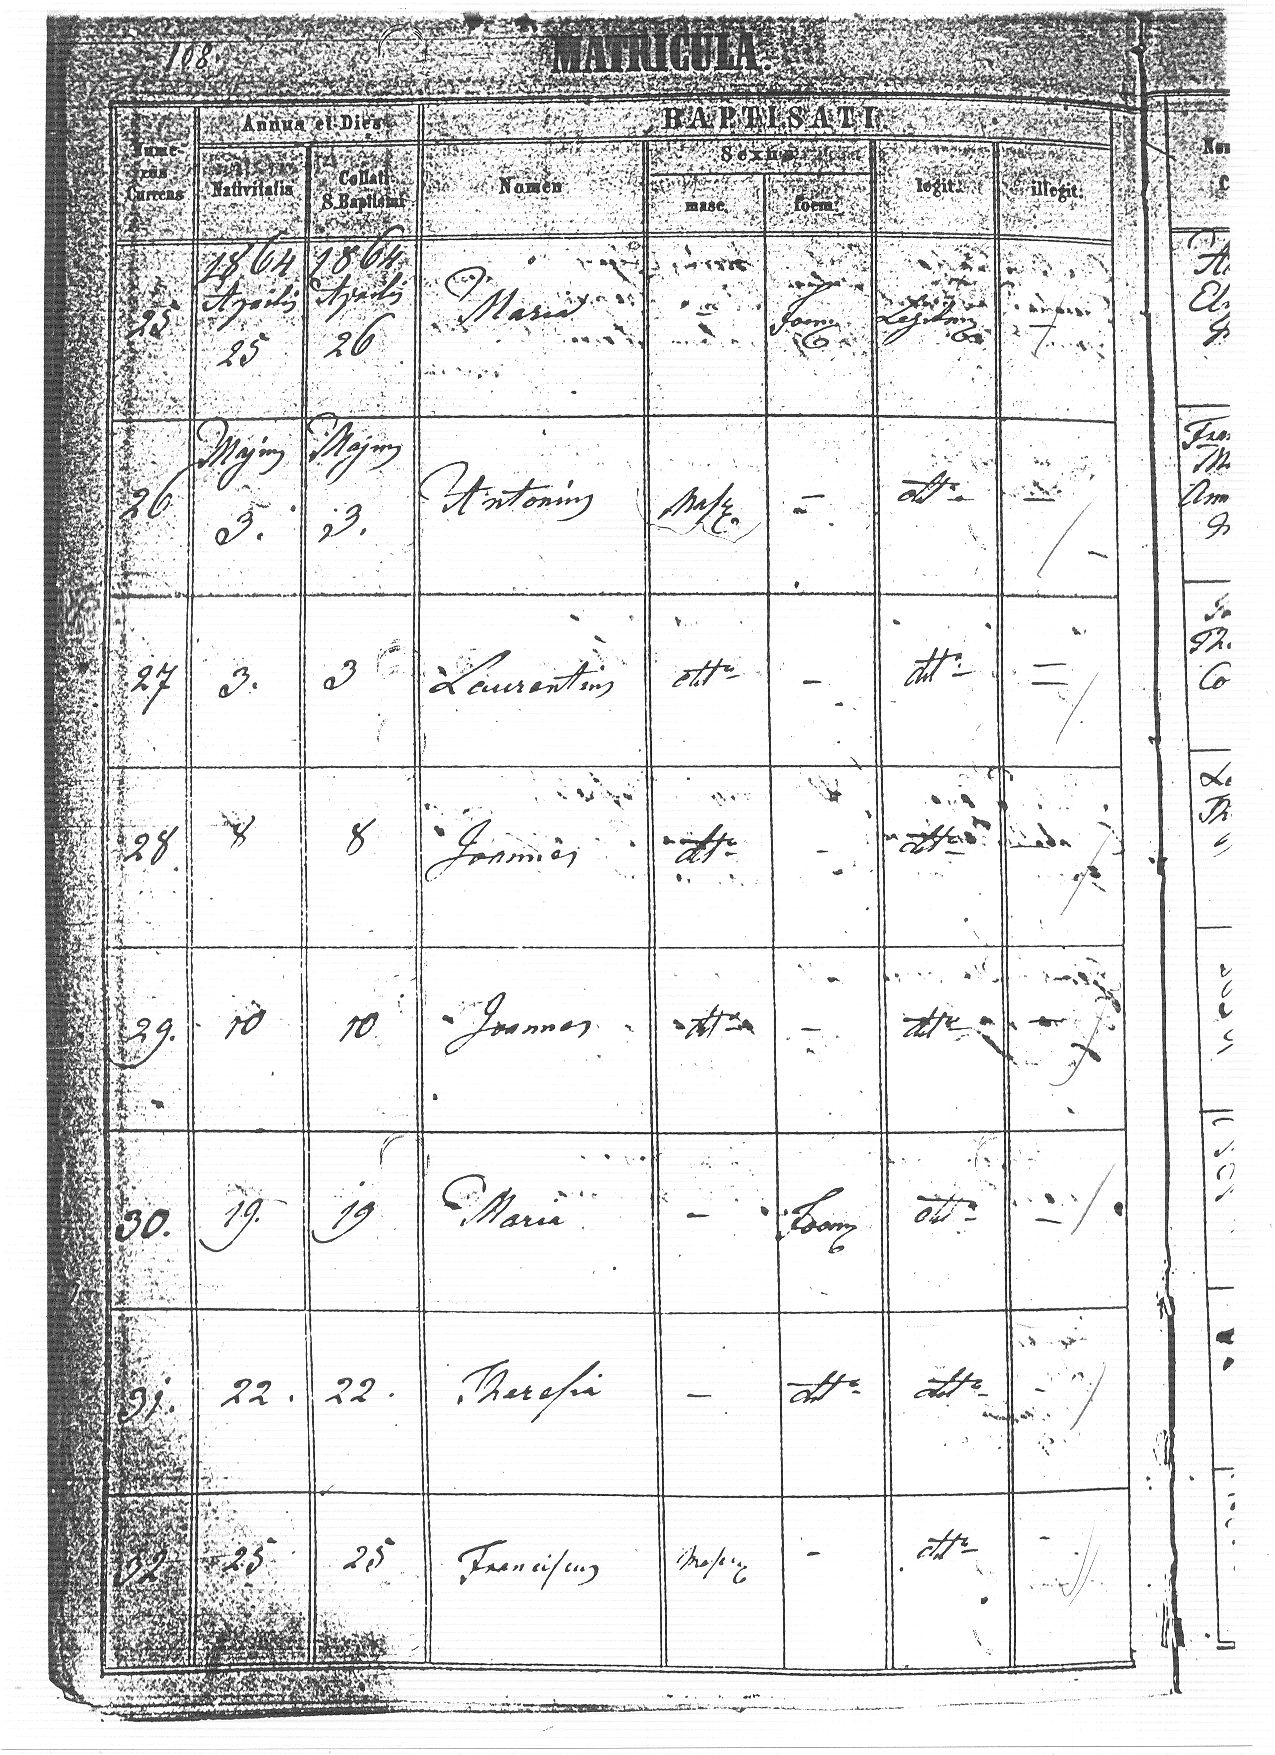 108.
MATRICULA.
Numerus Currens
Annus et Dies
Nativitatis
Collati S. Baptismi
BAPTISATI.
Nomen
Sexus
masc.
foem.
legit.
illegit.
25
1864 Aprilis 25
1864 Aprilis 26
Maria
-
Foem
-
26
Majus 3.
Majus 3.
Antonius
Masc.
-
dtto
-
27
3.
3
Laurentius
dtto
-
dtto
-
28
8
8
Joannes
dtto
-
dtto
29.
10
10
Joannes
dtto
-
dtto
-
30.
19.
19
Maria
-
Foem
dtto
-
31.
22.
22.
Theresia
-
dtto
dtto
-
32
25
25
Franciscus
-
dtto
-